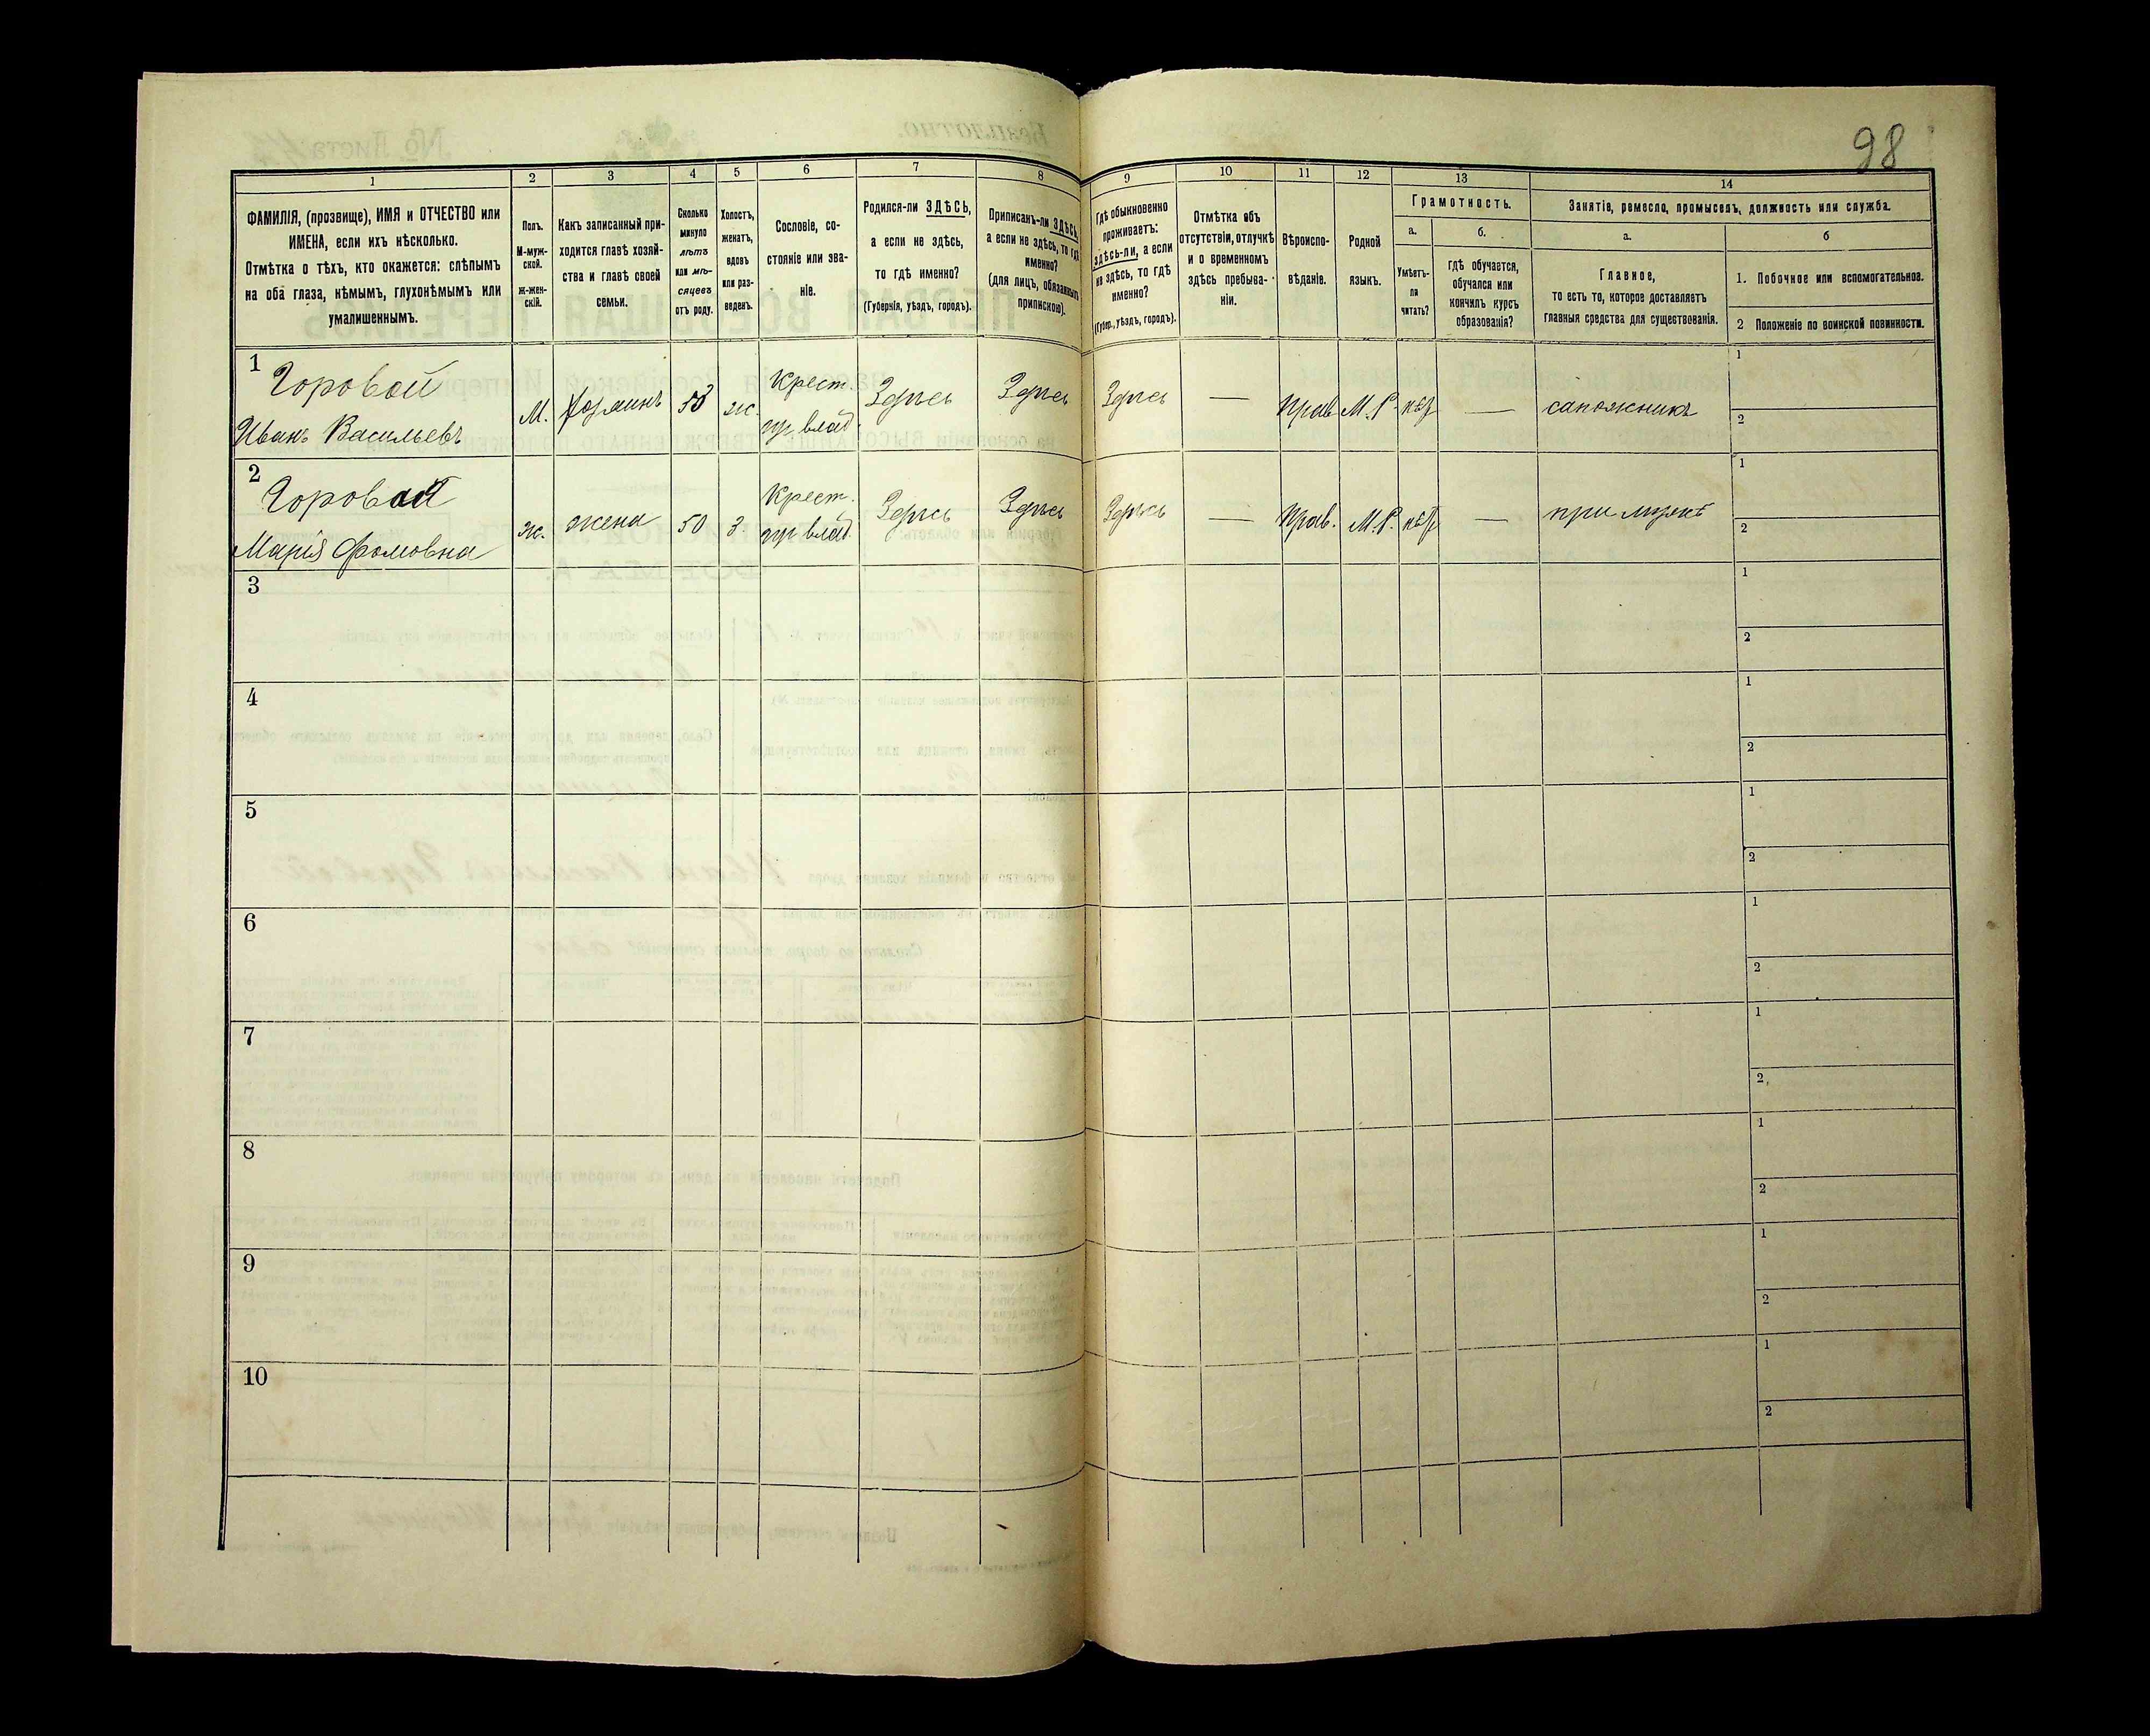 98
1 2 3 4 5 6 7 8 9 10 11 12 13 14
ФАМИЛІЯ, (прозвище), ИМЯ и ОТЧЕСТВО или
ИМЕНА, если ихъ нѣсколько.
Отмѣтка о тѣхъ, кто окажется: слѣпымъ
на оба глаза, нѣмымъ, глухонѣмымъ или
умалишеннымъ.
Полъ.
М-муж-
ской.
Ж-жен-
скій.
Какъ записанный при-
ходится главѣ хозяй-
ства и главѣ своей
семьи.
Сколько
минуло
лѣтъ
или мѣ-
сяцевъ
отъ роду.
Холостъ,
женатъ,
вдовъ
или раз-
веденъ.
Сословіе, со-
стояніе или зва-
ніе.
Родился-ли ЗДѢСЬ,
а если не здѣсь,
то гдѣ именно?
(Губернія, уѣздъ, городъ).
Приписанъ-ли ЗДѢСЬ,
а если не здѣсь, то гдѣ
именно?
(для лицъ, обязанныхъ
припискою).
Гдѣ обыкновенно
проживаетъ:
ЗДѢСЬ-ли, а если
не здѣсь, то гдѣ
именно?
(Губер., уѣздъ, городъ).
Отмѣтка объ
отсутствіи, отлучкѣ
и о временномъ
здѣсь пребыва-
ніи.
Вѣроиспо-
вѣданіе.
Родной
языкъ.
Грамотность.
а.
Умѣетъ-
ли
читать?
б.
гдѣ обучается,
обучался или
кончилъ курсъ
образованія?
Занятіе, ремесло, промыселъ, должность или служба.
а.
Главное,
то есть то, которое доставляетъ
главныя средства для существованія.
б
1. Побочное или вспомогательное.
2 Положеніе по воинской повинности.
1
Горовой
Иванъ Васильевъ
М. хозяинъ 53 ж.
Крест.
пр влад.
Здѣсь Здѣсь Здѣсь — Прав. М.Р. нѣт — сапожникъ
1
2
2
Горовая
Марія Фомовна
ж. жена 50 З.
Крест.
пр влад.
Здѣсь Здѣсь Здѣсь — Прав. М.Р. нѣт — при мужѣ
1
2
3
1
2
4
1
2
5
1
2
6
1
2
7
1
2
8
1
2
9
1
2
10
1
2